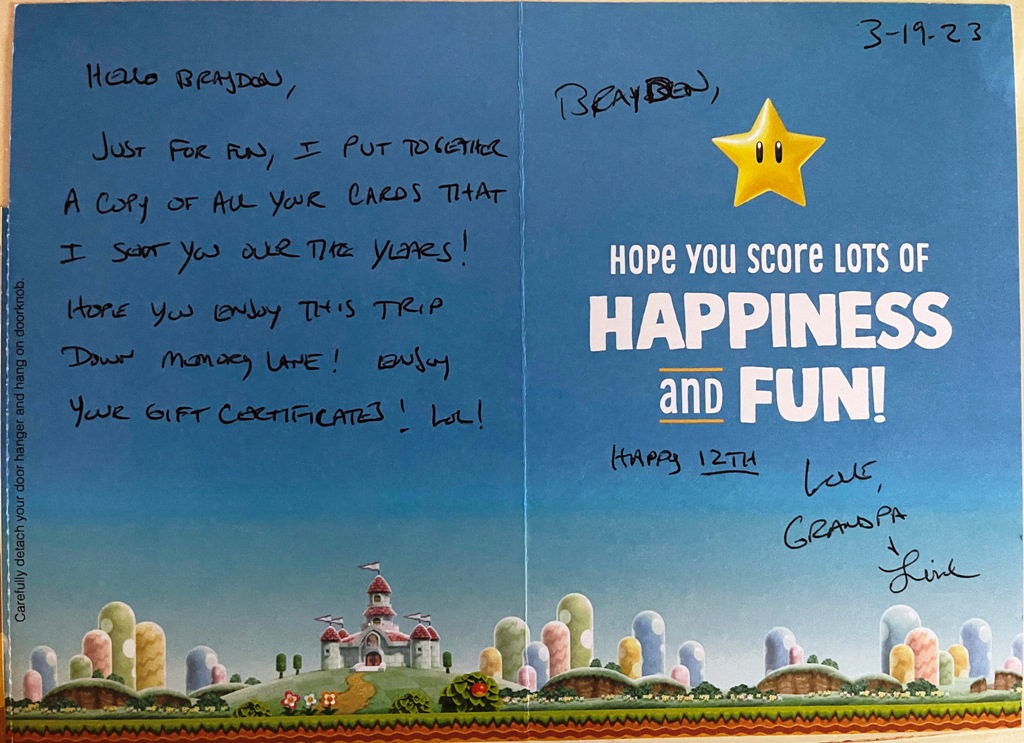 HELLO BRAYDON,
JUST FOR FUN, I PUT TOGETHER
A COPY OF ALL YOUR CARDS THAT
I SENT YOU OVER THE YEARS!
HOPE YOU ENJOY THIS TRIP
DOWN MEMORY LANE! ENJOY
YOUR GIFT CERTIFICATES! LOL!
Carefully detach your door hanger and hang on doorknob.
3-19-23
BRAYDEN,
HOPE YOU SCORE LOTS OF
HAPPINESS
and FUN!
HAPPY 12TH
LOVE,
GRANDPA